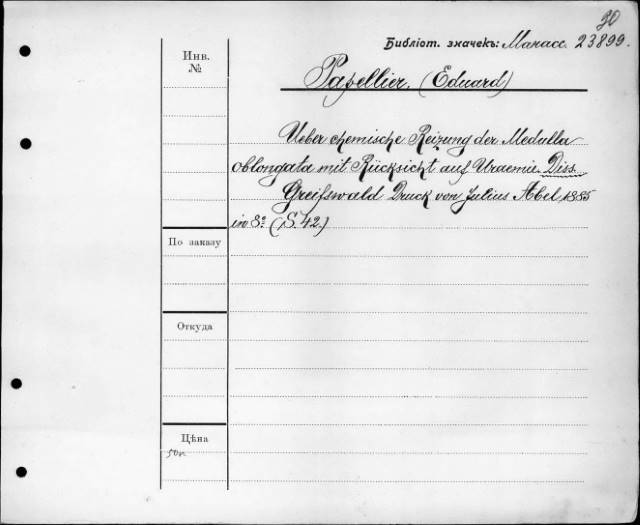 30
Библіот. значекъ: Манасс. 23899.
Инв.
№
Papellier, (Eduard)
Ueber chemische Reizung der Medulla
oblongata mit Rücksicht auf Uraemie. Diss.
Greifswald Druck von Julius Abel 1885
in 8º (S. 42.)
По заказу
Откуда
Цѣна
50к.